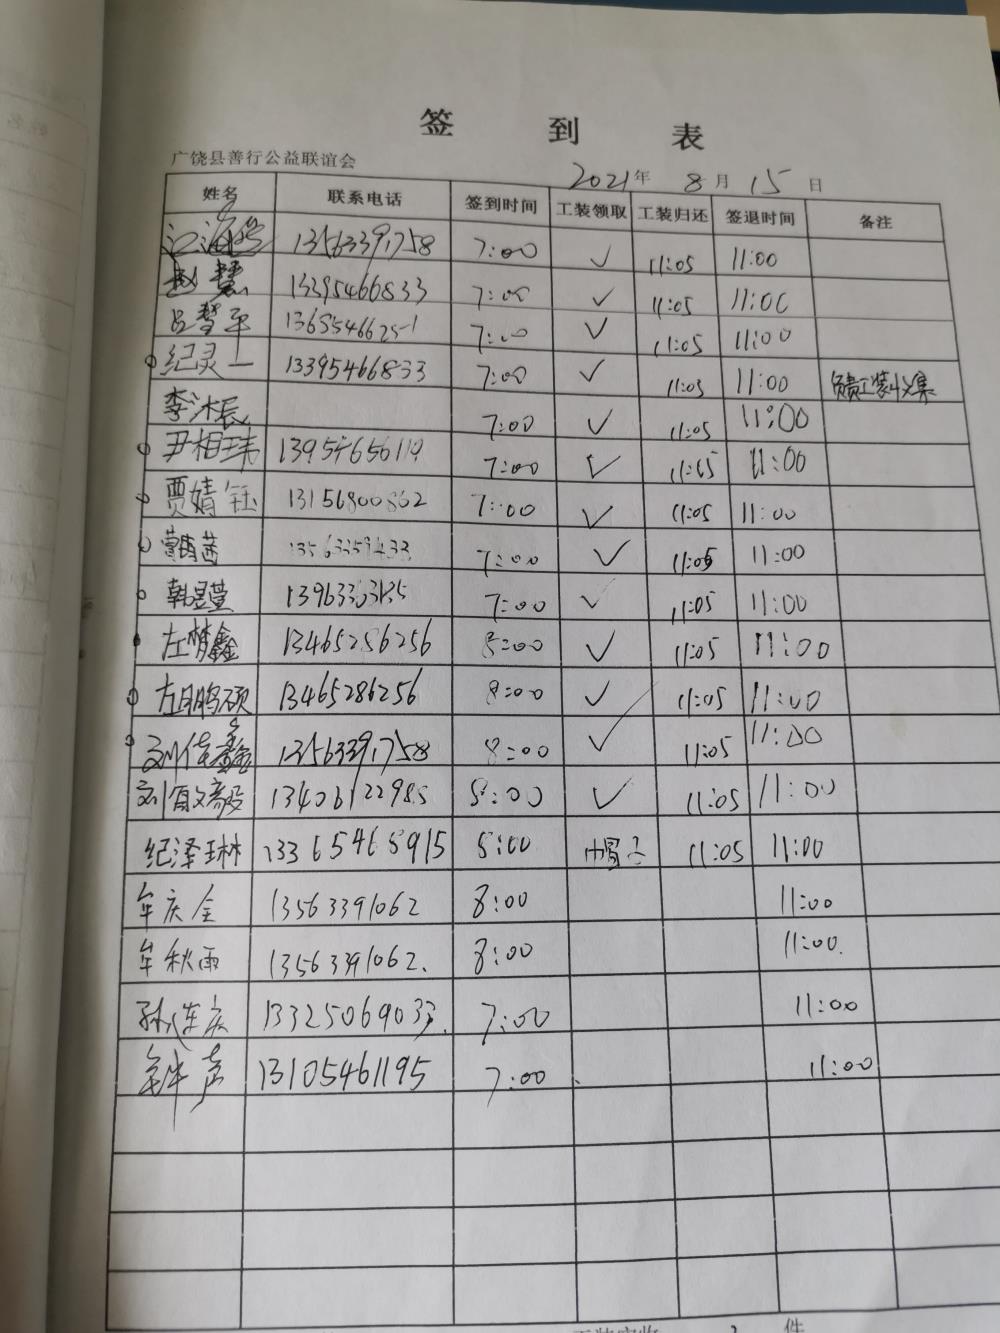 签 到 表
广饶县善行公益联谊会 2021年 8月 15日
姓名 联系电话 签到时间 工装领取 工装归还 签退时间 备注
13563391758 7:00 ✓ 11:05 11:00
赵慧 13395466833 7:00 ✓ 11:05 11:00
吕梦平 13655466251 7:00 ✓ 11:05 11:00
纪灵一 13395466833 7:00 ✓ 11:05 11:00 负责工装收集
李沐辰 7:00 ✓ 11:05 11:00
尹相玮 7:00 ✓ 11:05 11:00
贾婧钰 13156800862 7:00 ✓ 11:05 11:00
7:00 ✓ 11:05 11:00
韩昱萱 7:00 ✓ 11:05 11:00
左梦鑫 13465286256 8:00 ✓ 11:05 11:00
左鹏硕 13465286256 8:00 ✓ 11:05 11:00
刘佳鑫 13563391758 8:00 ✓ 11:05 11:00
13406122985 8:00 ✓ 11:05 11:00
纪泽琳 13365465915 8:00 帽子 11:05 11:00
牟庆全 13563391062 8:00 11:00
牟秋雨 13563391062. 8:00 11:00.
孙连庆 13325069033. 7:00 11:00
13105461195 7:00 11:00